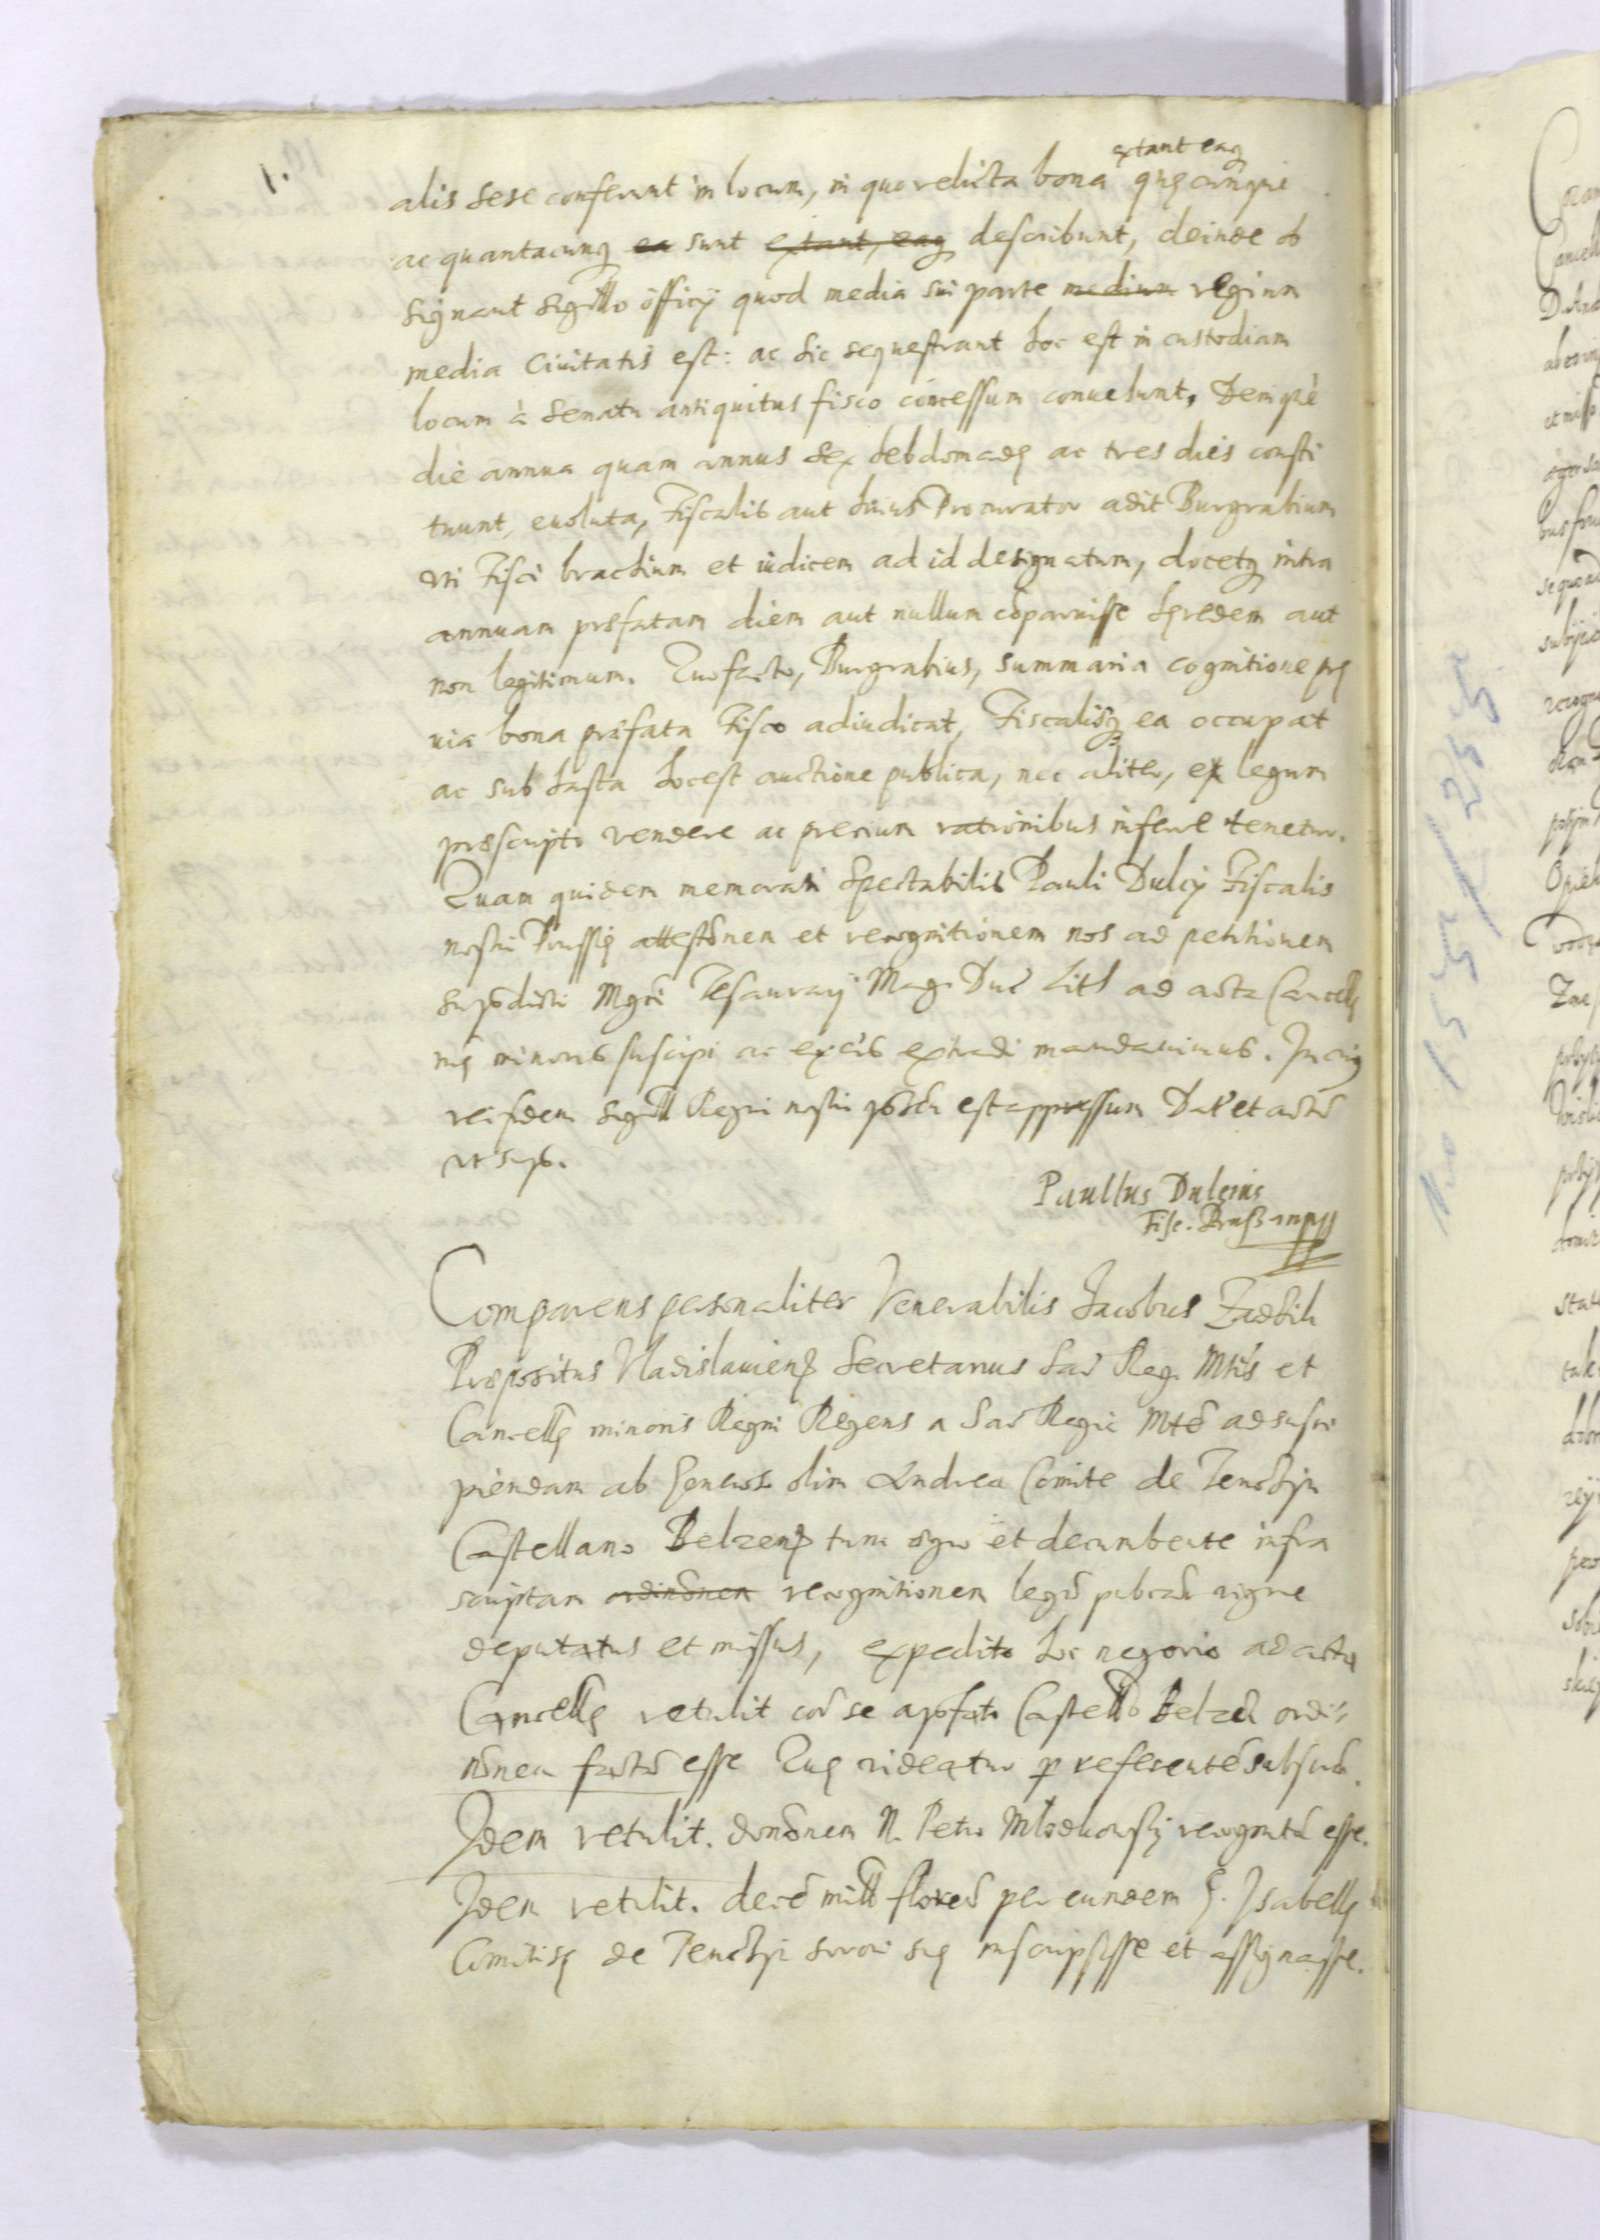 1.
extant eaq
alis sese conferunt in locum, in quo relicta bona quęcunque
ac quantacunq ea sunt extant, eaq describunt, deinde ob
signant sigillo officij quod media sui parte medium regium
media Ciuitatis est: ac sic sequestrant hoc est in custodiam
locum à Senatu antiquitus fisco concessum conuehunt. Denique
die annua quam annus sex hebdomadę ac tres dies consti
tuunt, euoluta, Fiscalis aut huius Procurator adit Burgrabium
uti Fisci brachium et iudicem ad id designatum, docetq intra
annuam præfatam diem aut nullum cõparuisse hęredem aut
non legitimum. Quo facto, Burgrabius, summaria cognitione prę
uia bona præfata Fisco adiudicat, Fiscalisq ea occupat
ac sub hasta hoc est auctione publica, nec aliter, ex legum
præscripto vendere ac precium rationibus inferre tenetur.
Quam quidem memorati Spectabilis Pauli Dulcij Fiscalis
nostri Prussię attestõnem et recognitionem nos ad petitionem
supradicti Mgci Tesaurarij Mag. Duc Lith ad acta Cancella
rię minoris suscipi ac ex eis extradi mandauimus. In cuiq
rei fidem sigill Regni nostri pñtib est appressum Dat et actũ
ut supra.
Paullus Dulcius
Fisc. Pruß mpp
Comparens personaliter Venerabilis Jacobus Zadzik
Præpositus Vladislauien Secretarius Sac Reg. Mtis et
Cancellę minoris Regni Regens a Sac Regia Mte ad susci
piendam ab Generoso olim Andrea Comite de Tenczyn
Castellano Belzen tunc ægro et decumbente infra
scriptam ordinõnem recognitionem legũ publicar uigore
deputatus et missus, expedito hoc negotio ad acta
Cancellę retulit corã se a præfato Castellano Belzen ordi
nõnem factã esse Quę uideatur p referentẽ subscrib.
Idem retulit. donõnem N. Petro Mlodkowsky recognitã esse.
Idem retulit. decẽ mill florenorũ per eundem G. Isabellę
Comitissę de Tenczyn sorori suę inscripsisse et assignasse.